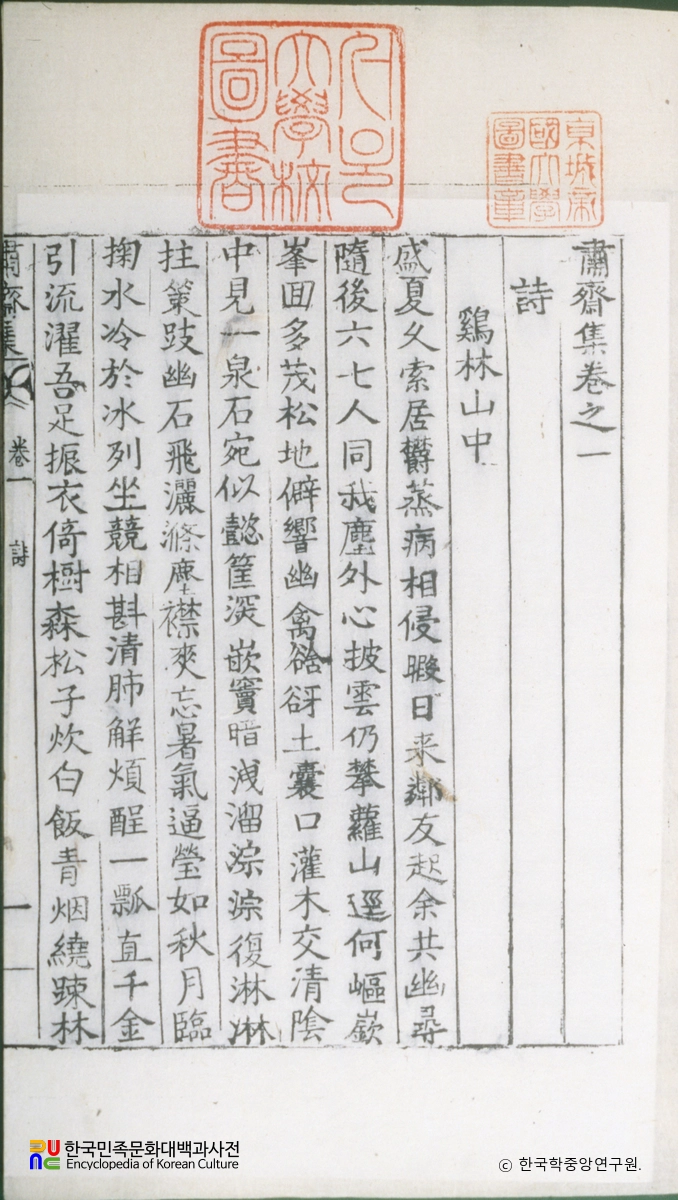 서울大學校圖書
京城帝國大學圖書章
肅齋集卷之一
詩
鷄林山中
盛夏久索居欝蒸病相侵暇日来鄰友起余共幽尋
隨後六七人同我塵外心披雲仍攀蘿山逕何嶇嶔
峯囬多茂松地僻響幽禽谽谺土囊口灌木交清陰
中見一泉石宛似懿筐深嵌竇暗洩溜淙淙復淋淋
拄策跂幽石飛灑滌塵襟爽忘暑氣逼瑩如秋月臨
掬水冷於冰列坐競相斟清肺解煩酲一瓢直千金
引流濯吾足振衣倚樹森松子炊白飯青烟繞踈林
肅齋集 卷一 詩 一
한국민족문화대백과사전
Encyclopedia of Korean Culture
ⓒ 한국학중앙연구원.